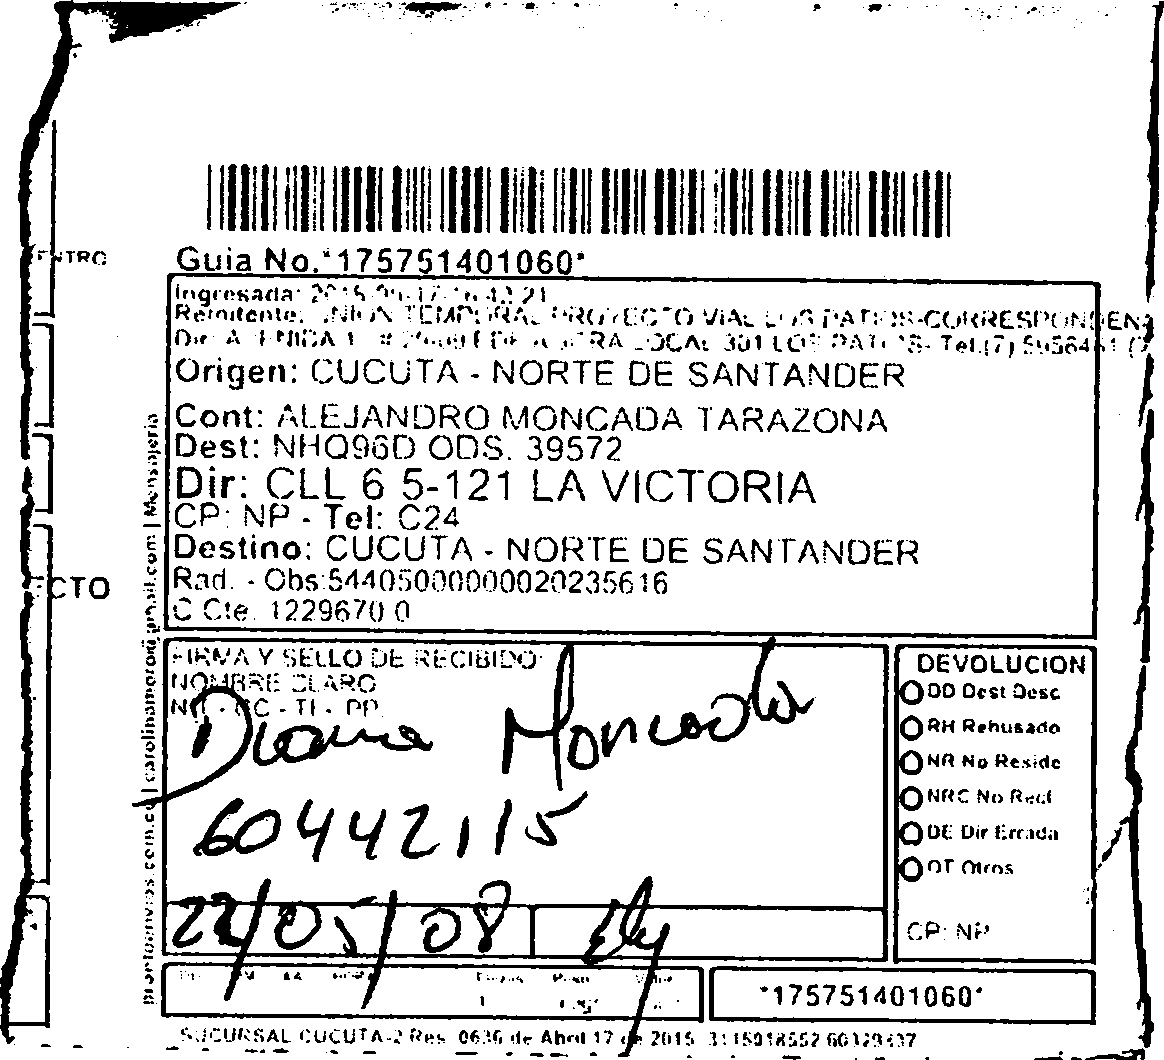 ENTRO
Guia No.*175751401060*
Ingresada:
Remitente: UNION TEMPORAL PROYECTO VIAL LOS PATIOS-CORRESPONDEN
LOCAL 301 LOS PATIOS- Tel:(7)
Origen: CUCUTA - NORTE DE SANTANDER
Cont: ALEJANDRO MONCADA TARAZONA
Dest: NHQ96D ODS. 39572
Dir: CLL 6 5-121 LA VICTORIA
CP: NP - Tel: C24
Destino: CUCUTA - NORTE DE SANTANDER
Rad. - Obs:54405000000020235616
C Cte. 1229670 0
ECTO
| Mensajeria
FIRMA Y SELLO DE RECIBIDO
NOMBRE CLARO
NIT - CC - TI - PP
Diana Moncada
60442115
22/05/08
DEVOLUCION
DD Dest Desc
RH Rehusado
NR No Reside
NRC No Recl
DE Dir Errada
OT Otros
CP: NP
*175751401060*
SUCURSAL CUCUTA-2 Res. 0636 de Abril 17 de 2015